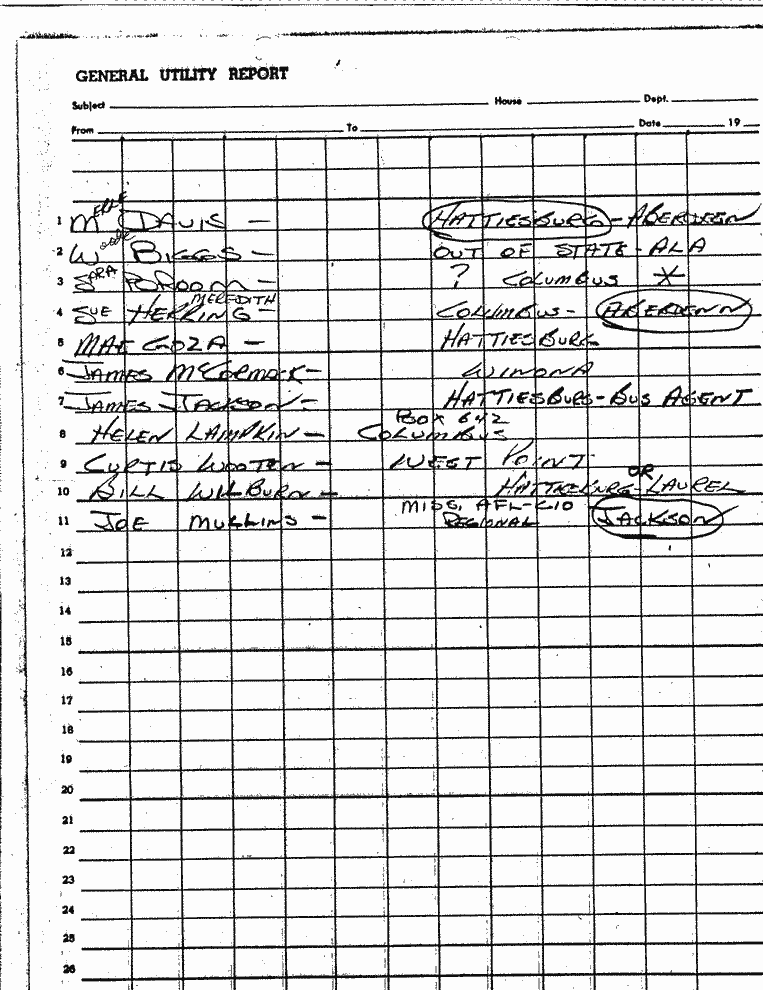 GENERAL UTILITY REPORT
Subject House Dept.
From To Date 19
1 MERLE DAVIS - HATTIESBURG - ABERDEEN
2 W BIGGS - OUT OF STATE - ALA
3 SARA BROOM - ? COLUMBUS *
4 SUE MEREDITH HERRING - COLUMBUS - ABERDENN
5 MAE GOZA - HATTIESBURG
6 JAMES McCORMACK - WINONA
7 JAMES JACKSON - HATTIESBURG - BUS AGENT
8 HELEN LAMPKIN - BOX 642 COLUMBUS
9 CURTIS WOOTEN - WEST POINT
10 BILL WILBURN - HATTIEBURG OR LAUREL
11 JOE MULLINS - MISS. AFL-CIO REGIONAL JACKSON
12
13
14
15
16
17
18
19
20
21
22
23
24
25
26